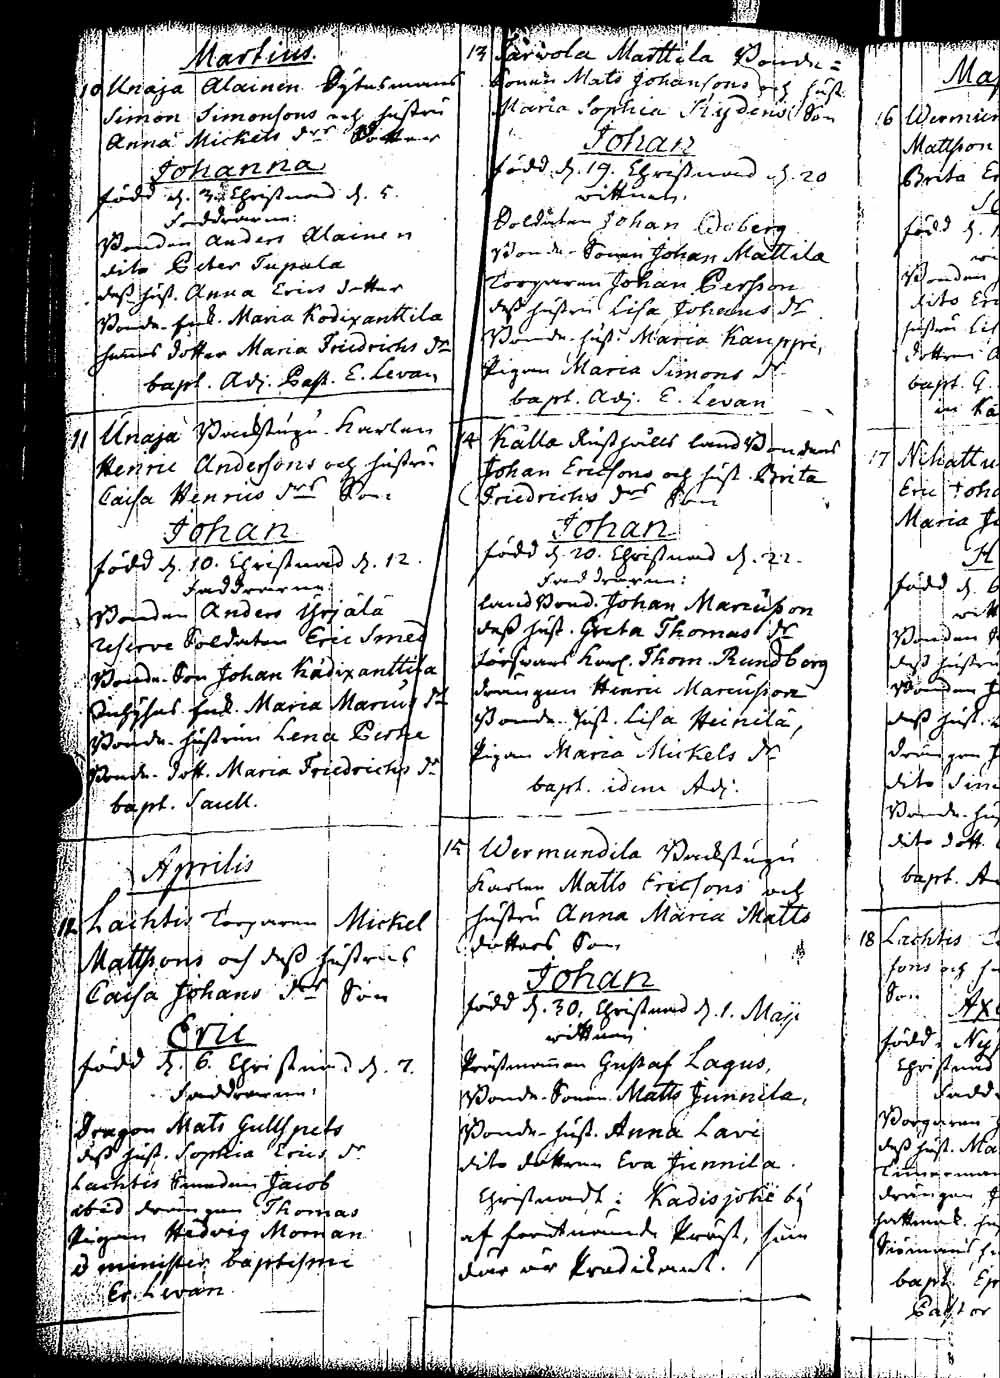 Martius.
10 Unaja Alainen Dytesmans
Simon Simonsons och hustru
Anna Mickels drs Dotter
Johanna
född d. 3. Christnad d. 5.
Faddrarne:
Bonden Anders Alainen
dito Peter Tupala
dess hust. Anna Erics dotter
Bonde- Maria Kodixanttila
hennes dotter Maria Friedrichs dr
bapt. Adj. Past. E. Levan
11 Unaja Backstugu Karlen
Henric Andersons och hustru
Caisa Henrics drs Son
Johan
född d. 10. Christnad d. 12.
Faddrarne
Bonden Anders Yrjälä
reserve Soldaten Eric Smed
Bonde-Son Johan Kådixanttila
Maria Marcus dr
Bonde-hustrun Lena
Bonde-dott. Maria Friedrichs dr
bapt. Saell.
Aprilis
12 Lachtis Torparen Mickel
Mattsons och dess hustrus
Caisa Johans drs Son
Eric
född d. 6. Christnad d. 7.
Faddrarne:
Dragon Mats Gullspets
dess hust. Sophia Erics dr
Lachtis Smeden Jacob
ibid drängen Thomas
Pigan Hedvig Moman
administer baptismi
Er. Levan.
13 Järvola Marttila Bonde=
Sonen Mats Johansons och hust.
Maria Sophia Rydens Son
Johan
född d. 19. Christnad d. 20
wittnen.
Soldaten Johan
Bonde-Sonen Johan Mattila
Torparen Johan Persson
dess hustru Lisa Johans dr
Bonde-hust. Maria Kauppi,
Pigan Maria Simons dr
bapt. Adj. E. Levan
14 Källa Rusthålls landBondens
Johan Ericsons och hust. Brita
Friedrichs drs Son
Johan
född d. 20. Christnad d. 22.
Faddrarne:
landBond. Johan Marcusson
dess hust. Greta Thomas dr
försvars Karl. Thom. Rundberg
drängen Henric Marcusson
Bonde-hust. Lisa Heinilä,
Pigan Maria Mickels dr
bapt. idem Adj.
15 Wermundila Backstugu
Karlen Matts Ericsons och
hustru Anna Maria Matts
dotters Son
Johan
född d. 30. Christnad d. 1. Maji
wittnen
Prostmannen Gustaf Lagus,
Bonde-Sonen Matts Junnila,
Bonde-hust. Anna Lavi
dito dottren Eva Junnila.
Christnadt i Kadisjoki by
af förutnämde Präst, som
där är Predikant.
16 Wermun
Mattson
Brita Er
född d. 1
Bonden
dito Eri
hustru Lis
dottren
bapt. G.
in Kä
17 Nihattu
Eric Joha
Maria
H
född d. 6
witt
Bonden
dess hustru
Bonden J
dess hust.
drängen J
dito Sim
Bonde-hu
dito dott.
bapt. A
18 Lachtis
sons och h
Son
Axe
född i Ny
Christnad
Fadd
Borgaren
dess hust. Ma
Timmerman
drängen J
bapt. Ep
Pastor